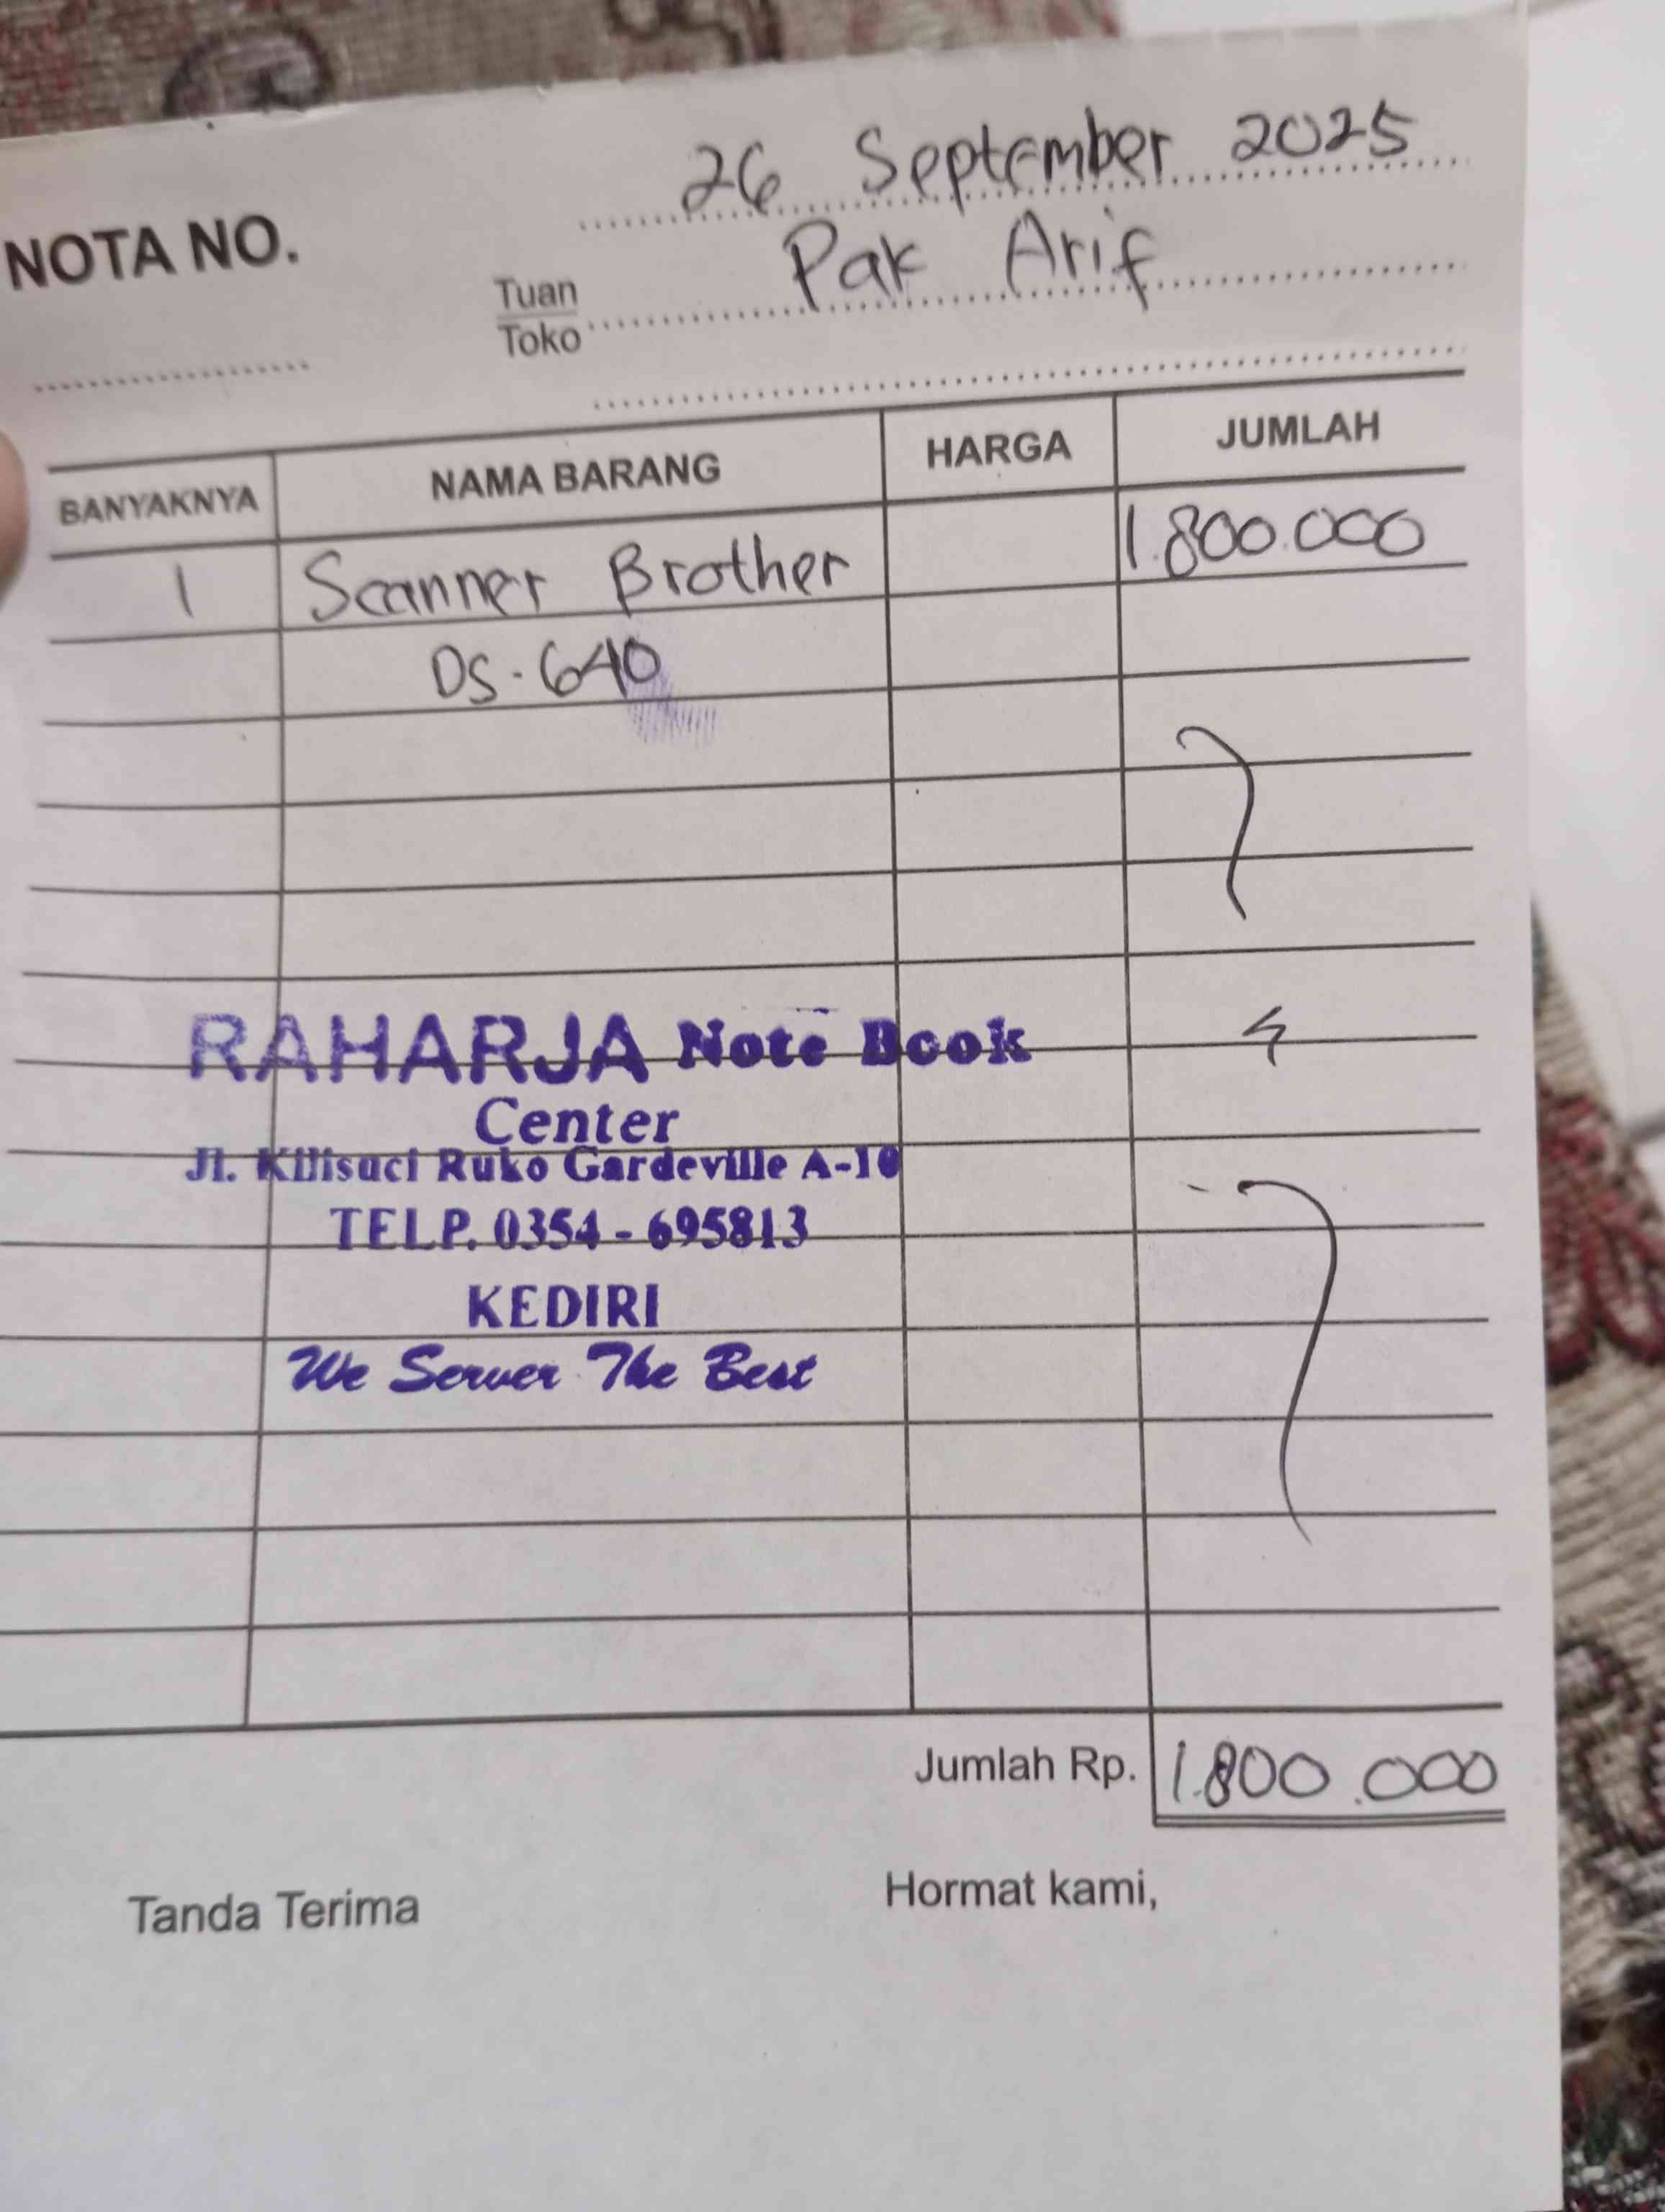 26 September 2025
NOTA NO.
Tuan
Toko
Pak Arif
BANYAKNYA NAMA BARANG HARGA JUMLAH
1 Scanner Brother 1.800.000
DS-640
RAHARJA Note Book
Center
Jl. Kilisuci Ruko Gardeville A-10
TELP. 0354 - 695813
KEDIRI
We Server The Best
Jumlah Rp. 1.800.000
Tanda Terima Hormat kami,